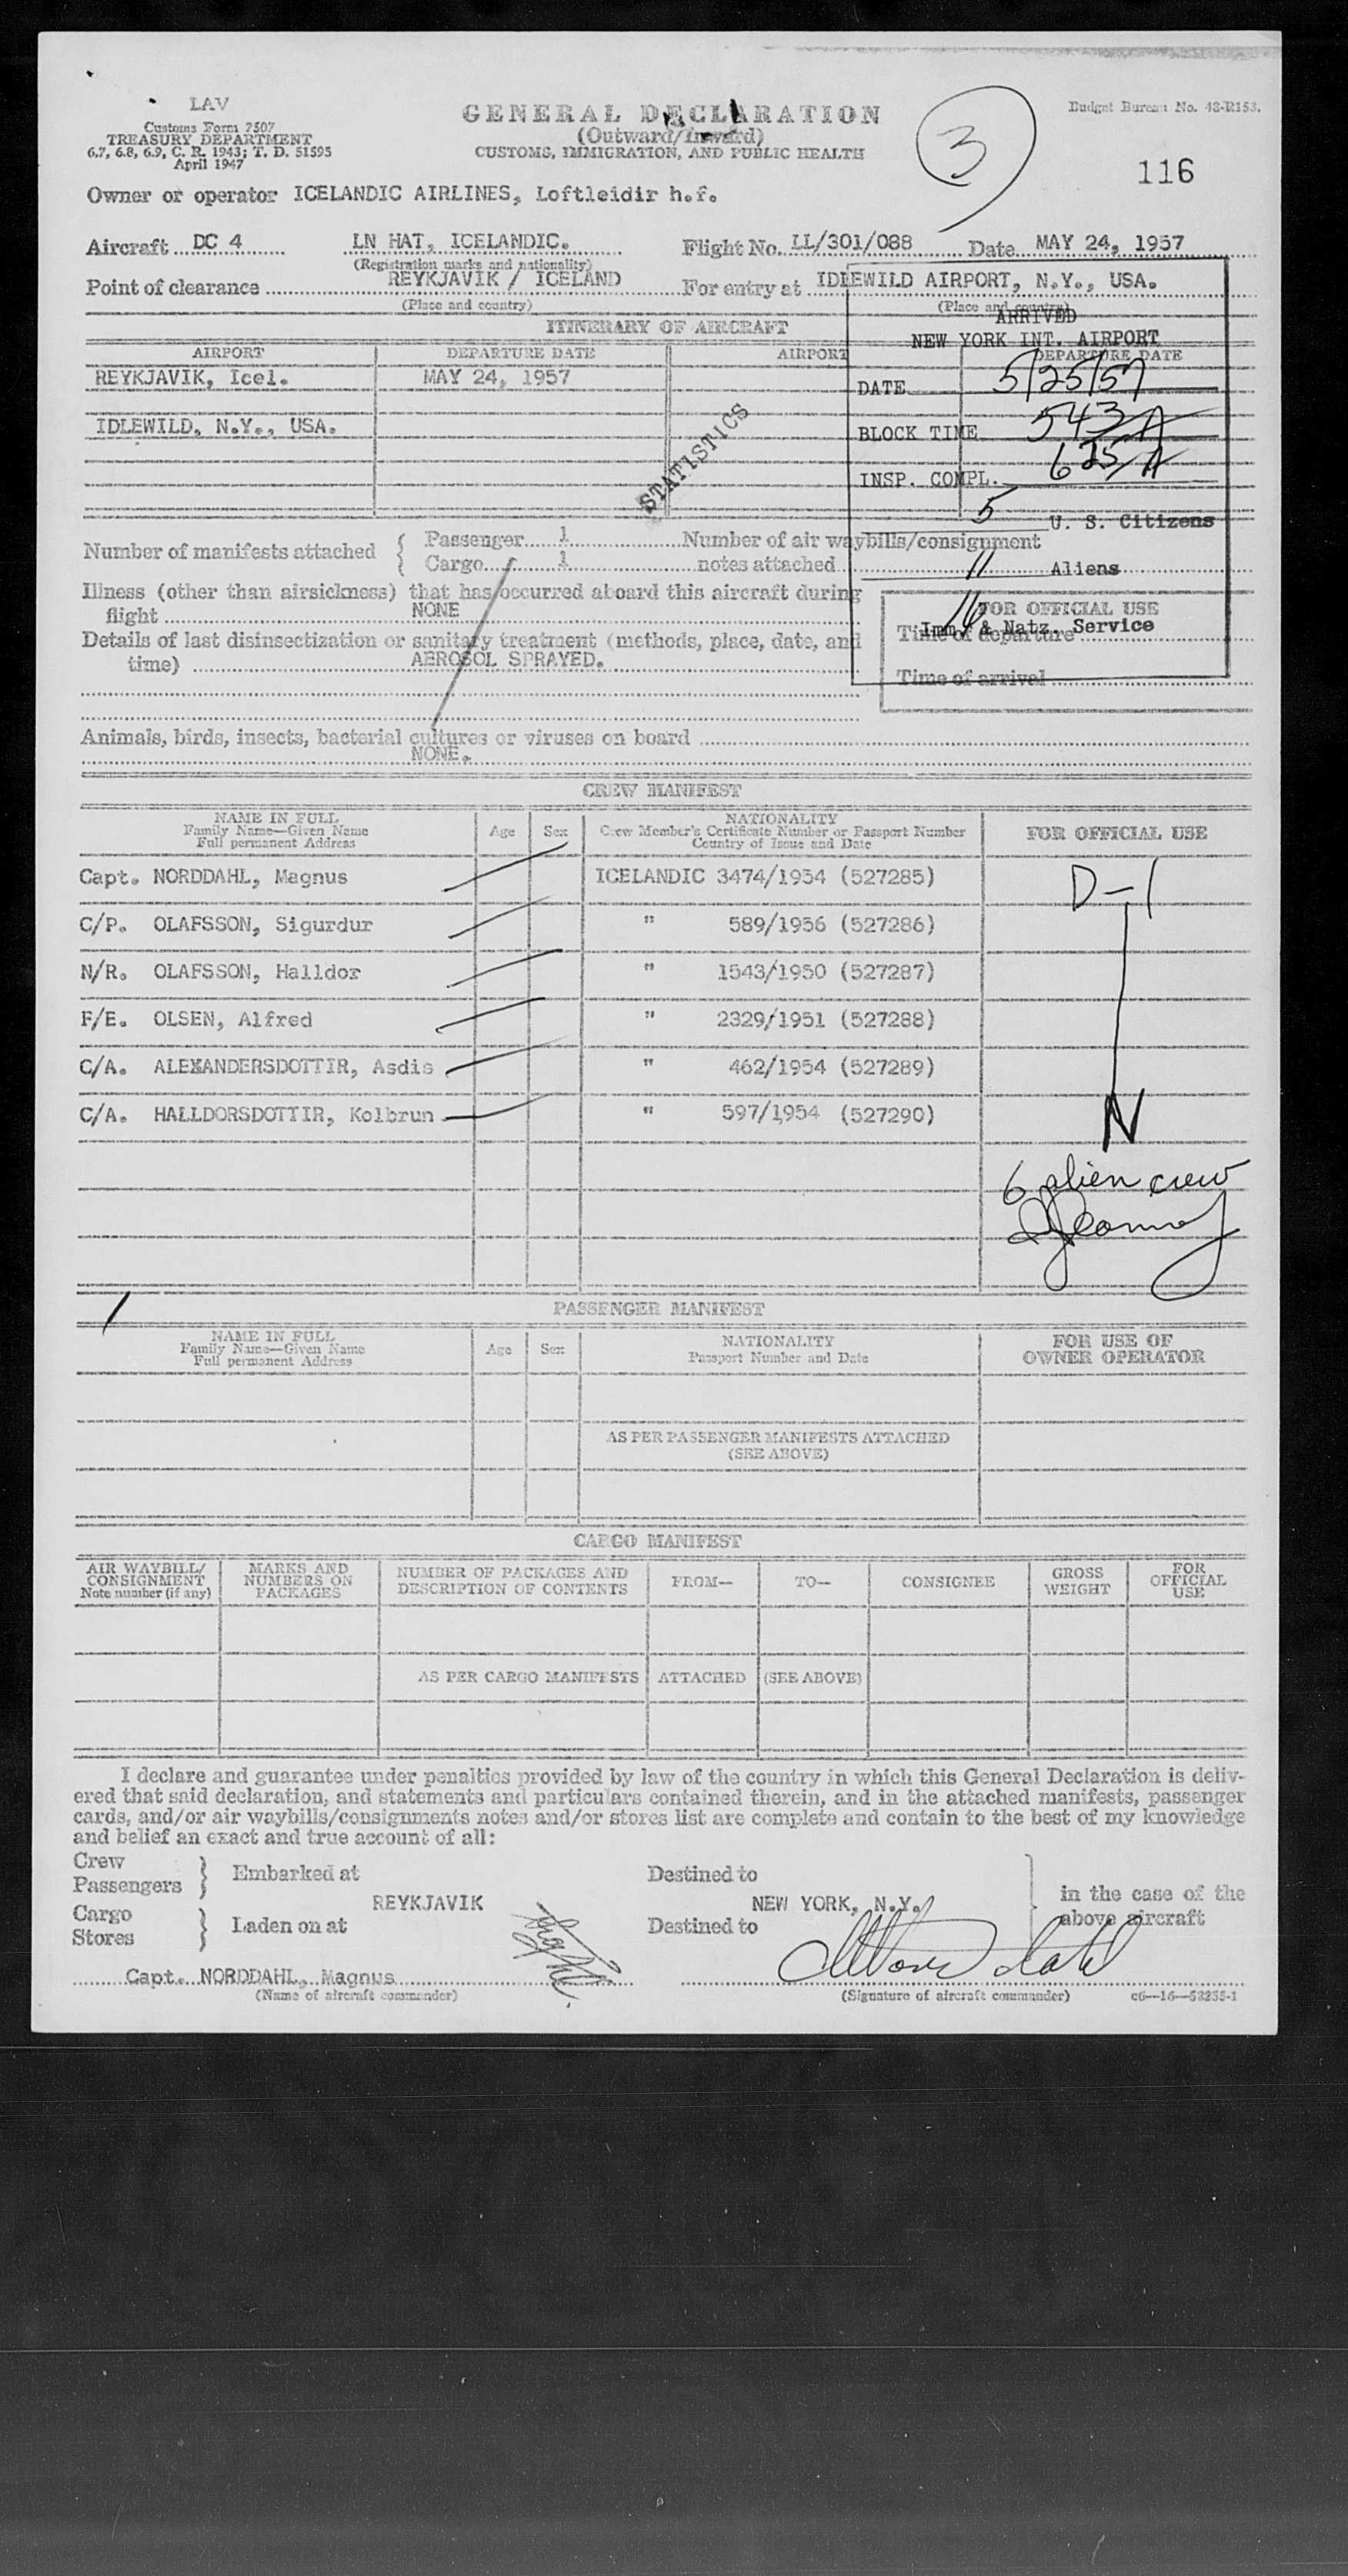 LAV
Customs Form 7507
TREASURY DEPARTMENT
6.7, 6.8, 6.9, C. R. 1943; T. D. 51595
April 1947
GENERAL DECLARATION
(Outward/Inward)
CUSTOMS, IMMIGRATION, AND PUBLIC HEALTH
3
Budget Bureau No. 48-R153.
116
Owner or operator ICELANDIC AIRLINES, Loftleidir h.f.
Aircraft DC 4 LN HAT, ICELANDIC. Flight No. LL/301/088 Date MAY 24, 1957
(Registration marks and nationality)
Point of clearance REYKJAVIK / ICELAND For entry at IDLEWILD AIRPORT, N.Y., USA.
(Place and country) (Place and country)
ARRIVED
NEW YORK INT. AIRPORT
ITINERARY OF AIRCRAFT
AIRPORT DEPARTURE DATE AIRPORT DEPARTURE DATE
REYKJAVIK, Icel. MAY 24, 1957
DATE 5/25/57
IDLEWILD, N.Y., USA.
BLOCK TIME 543 A
STATISTICS
INSP. COMPL. 625 A
5 U. S. Citizens
Number of manifests attached { Passenger 1 Number of air waybills/consignment
Cargo 1 notes attached
11 Aliens
Illness (other than airsickness) that has occurred aboard this aircraft during
flight NONE
16
FOR OFFICIAL USE
Imm. & Natz. Service
Time of departure
Details of last disinsectization or sanitary treatment (methods, place, date, and
time) AEROSOL SPRAYED.
Time of arrival
Animals, birds, insects, bacterial cultures or viruses on board
NONE.
CREW MANIFEST
NAME IN FULL
Family Name—Given Name
Full permanent Address
Age Sex
NATIONALITY
Crew Member's Certificate Number or Passport Number
Country of Issue and Date
FOR OFFICIAL USE
Capt. NORDDAHL, Magnus ICELANDIC 3474/1954 (527285) D-1
C/P. OLAFSSON, Sigurdur " 589/1956 (527286)
N/R. OLAFSSON, Halldor " 1543/1950 (527287)
F/E. OLSEN, Alfred " 2329/1951 (527288)
C/A. ALEXANDERSDOTTIR, Asdis " 462/1954 (527289)
C/A. HALLDORSDOTTIR, Kolbrun " 597/1954 (527290) N
6 alien crew
PASSENGER MANIFEST
NAME IN FULL
Family Name—Given Name
Full permanent Address
Age Sex
NATIONALITY
Passport Number and Date
FOR USE OF
OWNER OPERATOR
AS PER PASSENGER MANIFESTS ATTACHED
(SEE ABOVE)
CARGO MANIFEST
AIR WAYBILL/
CONSIGNMENT
Note number (if any)
MARKS AND
NUMBERS ON
PACKAGES
NUMBER OF PACKAGES AND
DESCRIPTION OF CONTENTS
FROM— TO— CONSIGNEE
GROSS
WEIGHT
FOR
OFFICIAL
USE
AS PER CARGO MANIFESTS ATTACHED (SEE ABOVE)
I declare and guarantee under penalties provided by law of the country in which this General Declaration is deliv-
ered that said declaration, and statements and particulars contained therein, and in the attached manifests, passenger
cards, and/or air waybills/consignments notes and/or stores list are complete and contain to the best of my knowledge
and belief an exact and true account of all:
Crew
Passengers } Embarked at Destined to
REYKJAVIK NEW YORK, N.Y.
in the case of the
above aircraft
Cargo
Stores } Laden on at Destined to
Capt. NORDDAHL, Magnus
(Name of aircraft commander) (Signature of aircraft commander) c6—16—53255-1